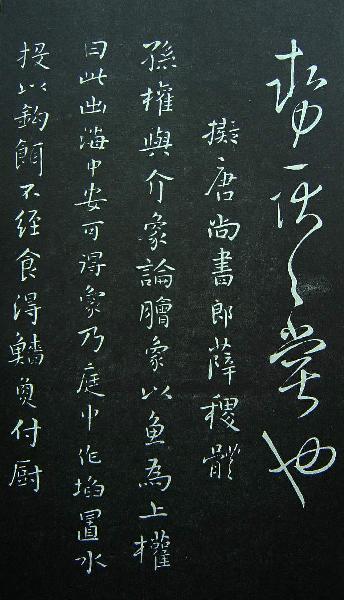 也
擬唐尚書郎薛稷體
孫權與介象論膾象以魚為上權
曰此出海中安可得象乃庭中作埳置水
投以鈎餌不經食得魚付厨